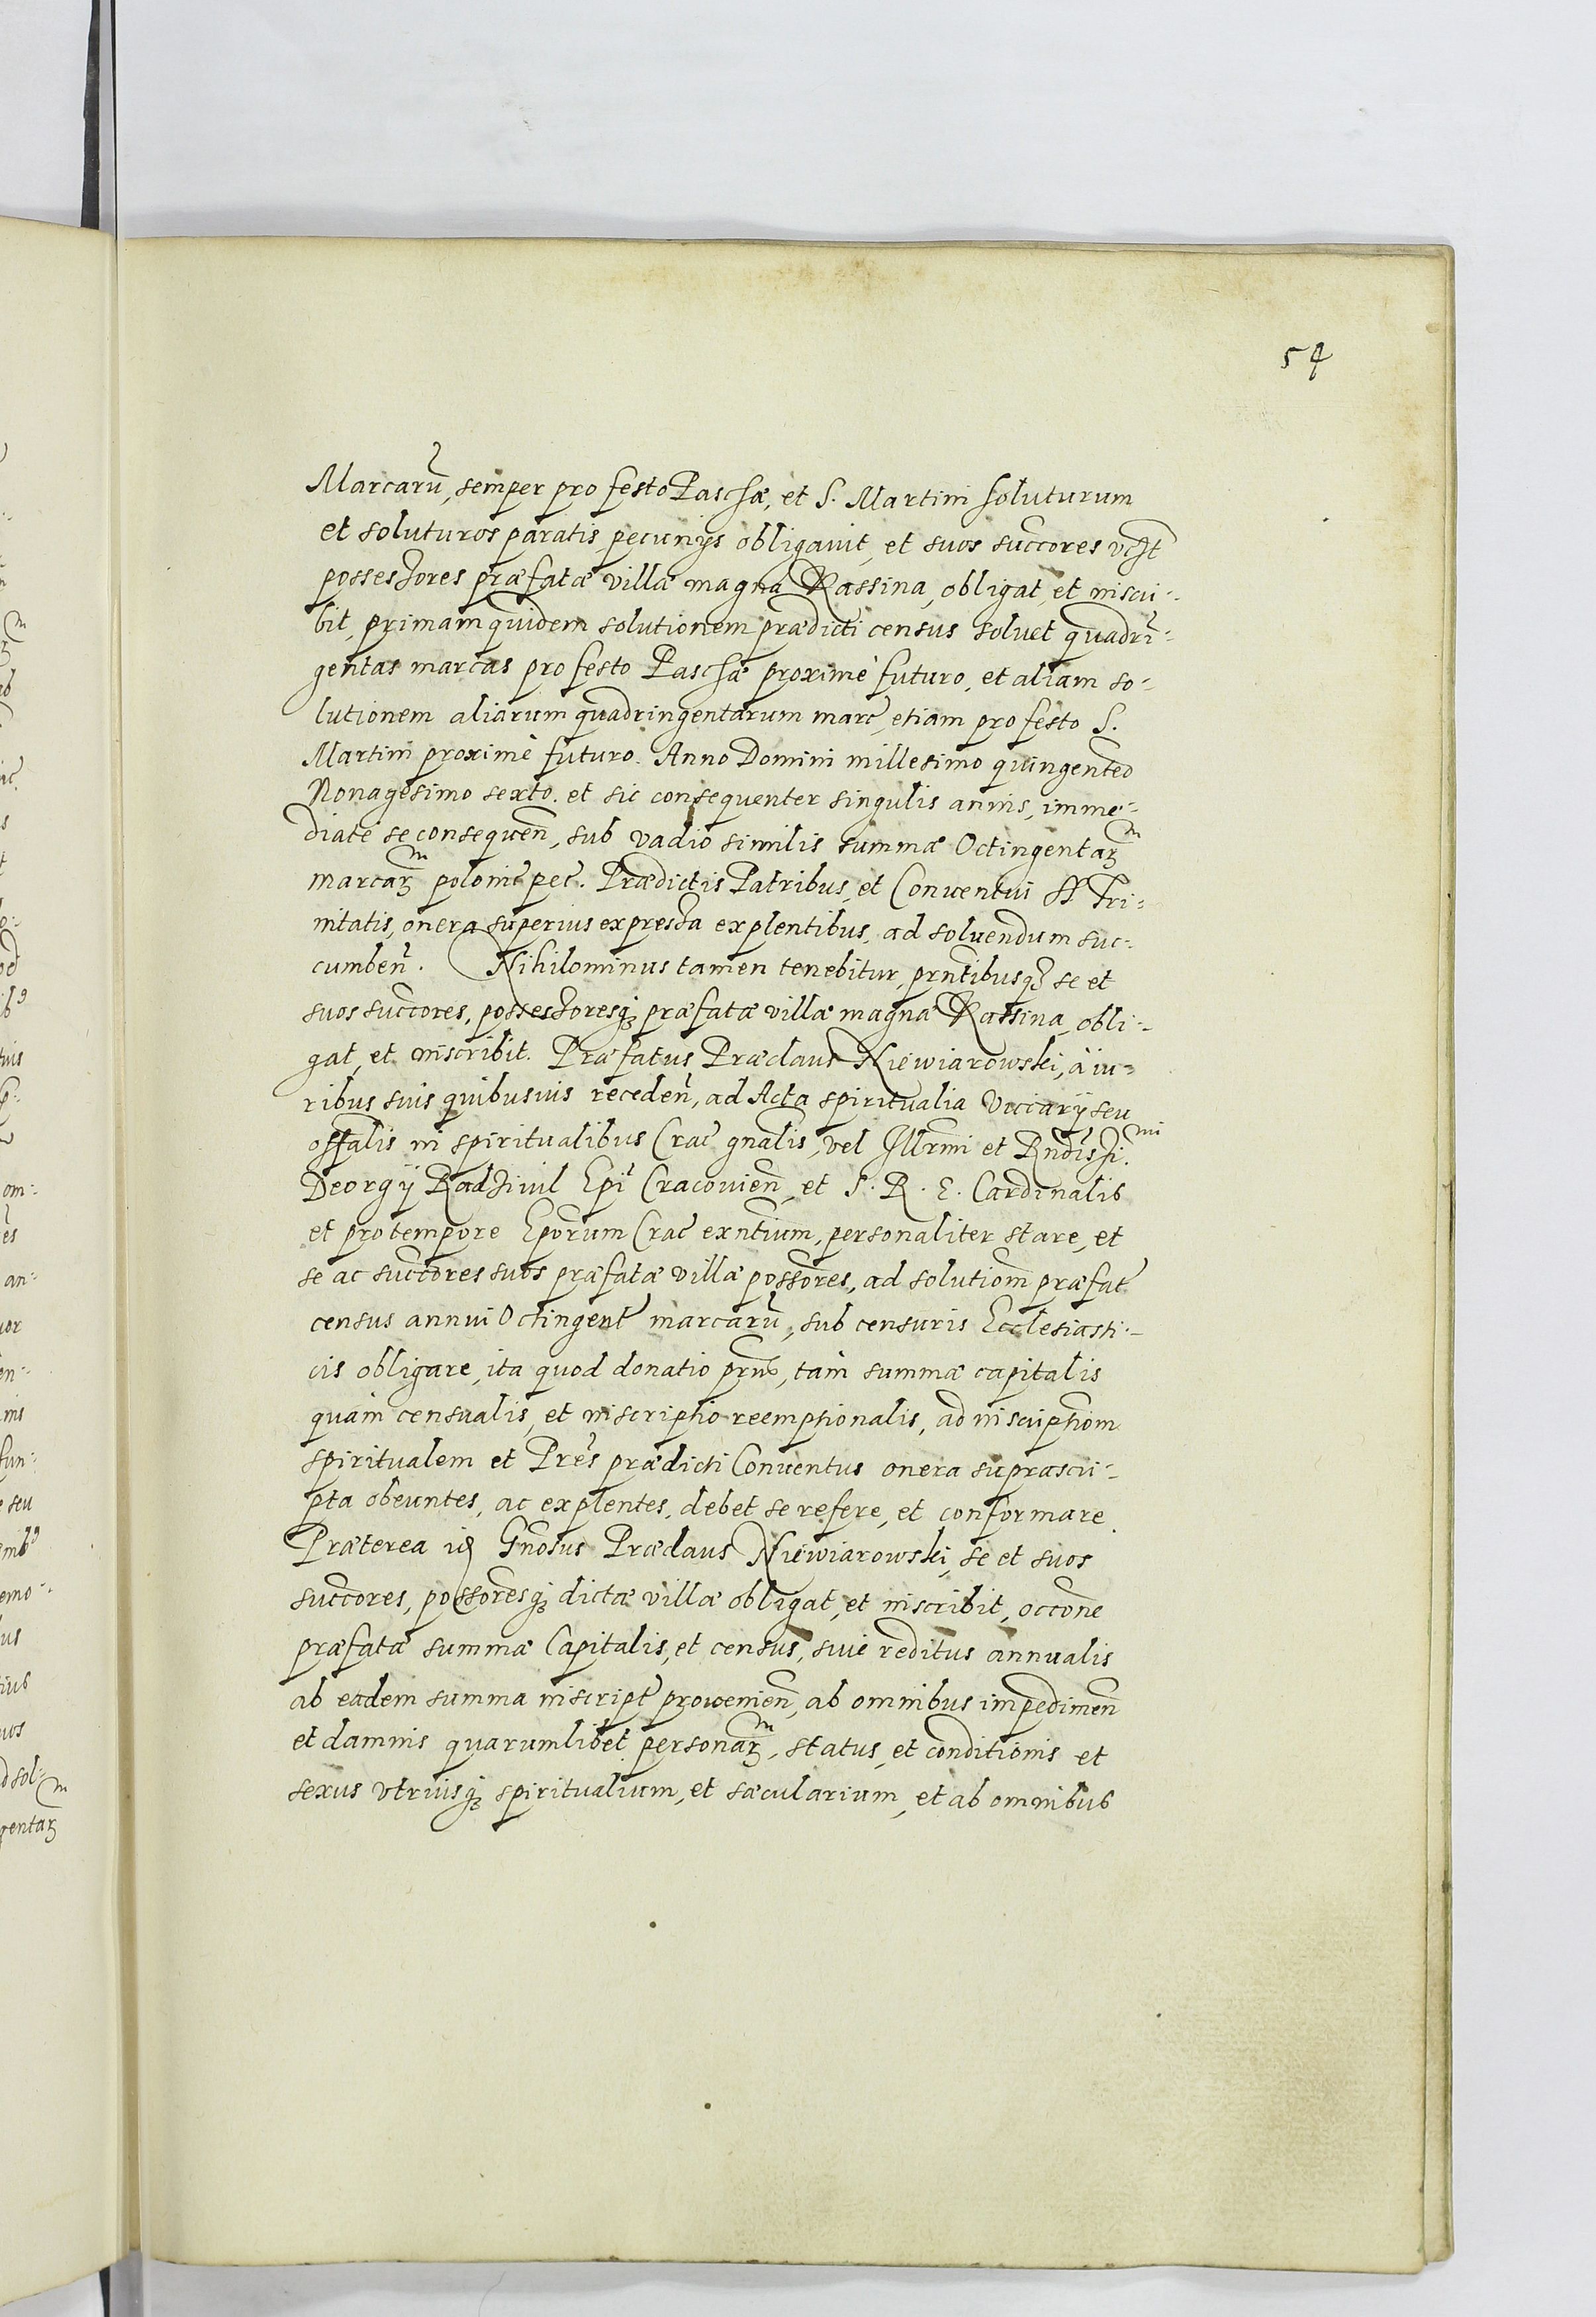 54
Marcarũ, semper pro festo Paschæ, et S. Martini soluturum
et soluturos paratis pecunijs obligauit, et suos succores
possessores præfatæ villæ magna Kassina, obligat, et inscri-
bit, primam quidem solutionem prædicti census soluet quadri-
gentas marcas pro festo Paschæ proximè futuro, et aliam so-
lutionem aliarum quadringentarum marc, etiam pro festo S.
Martini proximè futuro. Anno Domini millesimo quingenteo
Nonagesimo sexto. et sic consequenter singulis annis, imme-
diatè se consequeñ, sub vadio similis summæ Octingentarꝫm
marcarꝫm polonic pec. Prædictis Patribus, et Conuentui SS Tri-
nitatis, onera superius expressa explentibus, ad soluendum suc-
cumbeñ. Nihilominus tamen tenebitur, prntibusqꝫ se et
suos succores, possessoresqꝫ præfatæ villæ magna Kassina, obli-
gat, et inscribit. Præfatus Præclaus Niewiarowski, à iu-
ribus suis quibusuis recedeñ, ad Acta spiritualia Vicarij seu
offalis in spiritualibus Crac gnalis, vel Illrmi et Rndissimi
Deorgij Radziuil Epi Cracouieñ, et S. R. E. Cardinalis
et pro tempore Eporum Crac exntium, personaliter stare, et
se ac succores suos præfatæ villæ possores, ad solutiom præfat
census annui Octingent marcarũ, sub censuris Ecclesiasti-
cis obligare, ita quod donatio prns, tàm summæ capitalis
quàm censualis, et inscriptio reemptionalis, ad inscriptiom
spiritualem et Pres prædicti Conuentus onera suprascri-
pta obeuntes, ac explentes, debet se refere, et conformare.
Præterea idẽ Gnosus Præclaus Niewiarowski, se et suos
succores, possoresqꝫ dictæ villæ obligat, et inscribit, occone
præfatæ summæ Capitalis, et census, siue reditus annualis
ab eadem summa inscript prouenieñ, ab omnibus impedimeñ
et damnis quarumlibet personarꝫm, status, et conditionis et
sexus vtriusqꝫ spiritualium, et sæcularium, et ab omnibus